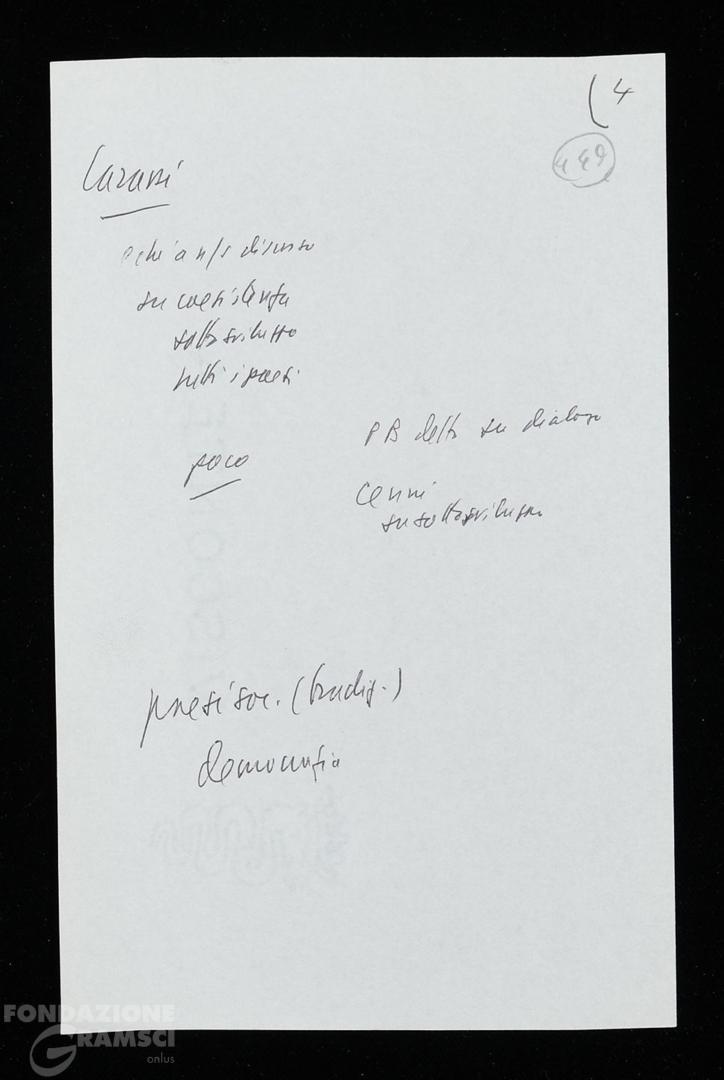 (4
449
su coesistenza
sottosviluppo
tutti i paesi
PB detto su dialogo
poco
Cenni
su sottosviluppo
paesi soc. (tradiz.)
democrazia
FONDAZIONE
GRAMSCI
onlus